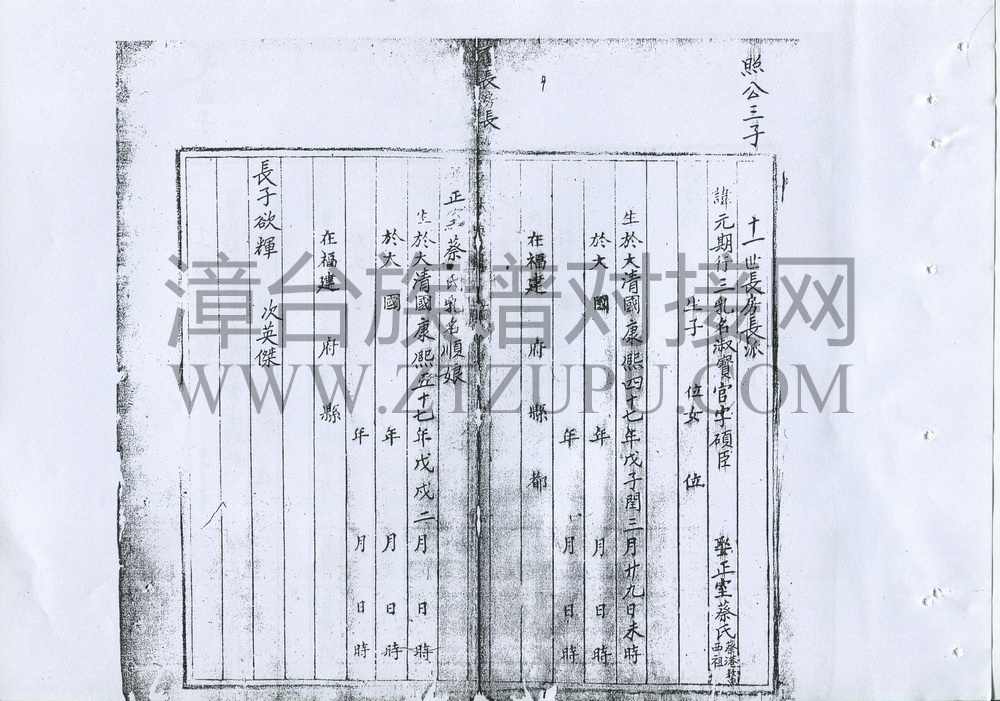 照公三子
十一世長房長派
諱元期行三乳名淑寶官字碩臣 娶正室蔡氏
生子 位女 位
生於大清國康熙四十七年戊子閏三月廿九日未時
於大 國 年 月 日 時
年 月 日 時
在福建 府 縣 都
長房長
正室蔡氏乳名順娘
生於大清國康熙五十七年戊戌二月 日 時
於大 國 年 月 日 時
年 月 日 時
在福建 府 縣
長子欲輝 次英傑
漳台族谱对接网
WWW.ZTZUPU.COM